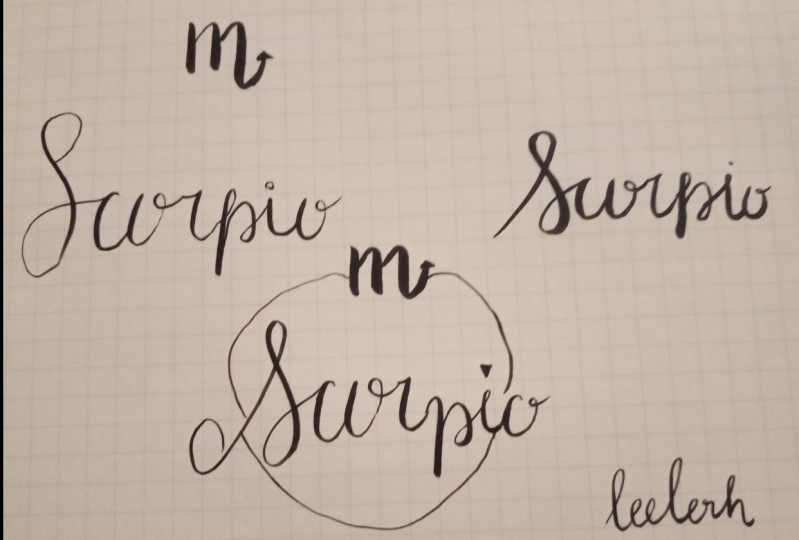 ♏
Scorpio
Scorpio
♏
Scorpio
leelerh